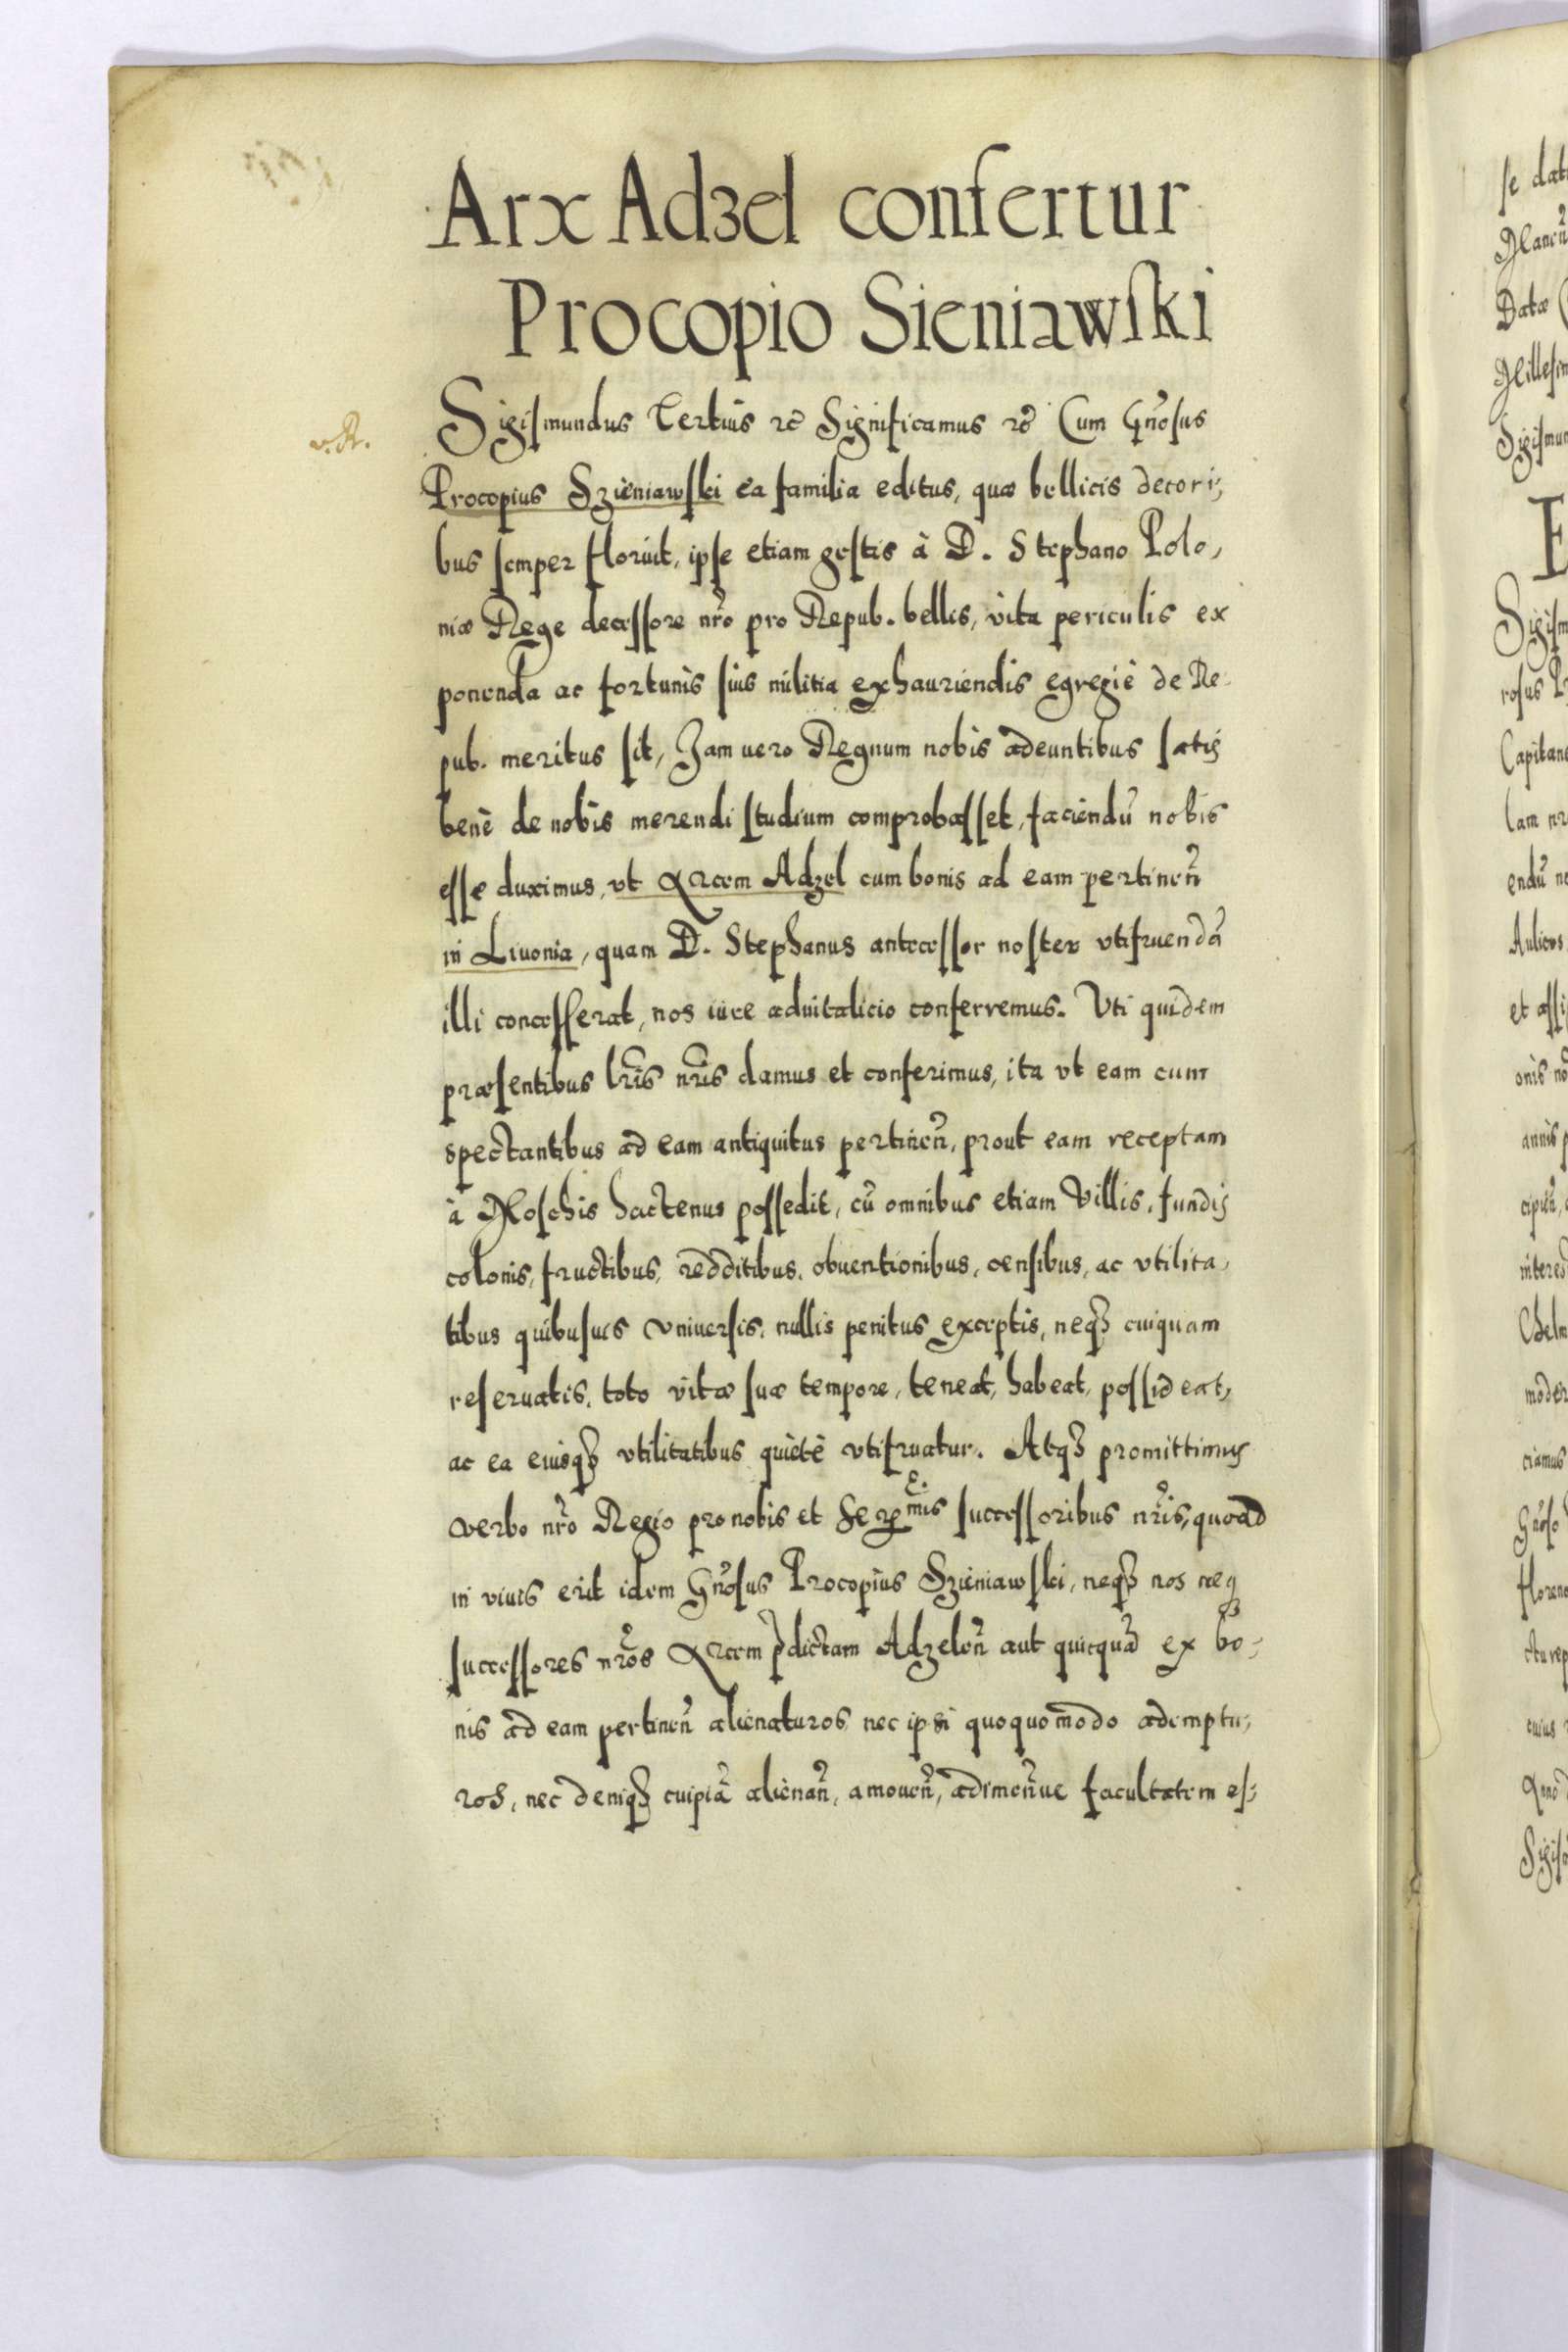 Arx Adzel confertur
Procopio Sieniawſki
v. A.
Sigiſmundus Tertius rc̃ Significamus rc̃ Cum Gñoſus
Procopius Szieniawſki ea familia editus, quæ bellicis decori,
bus ſemper floruit, ipſe etiam geſtis à D. Stephano Polo,
niæ Rege deceſſore nr̃o pro Repub. bellis, vita periculis ex
ponenda ac fortunis ſuis militia exhauriendis egregiè de Re
pub. meritus ſit, Jam uero Regnum nobis adeuntibus ſatis
benè de nobis merendi ſtudium comprobaſſet, faciendũ nobis
eſſe duximus, vt Arcem Adzel cum bonis ad eam pertineñ
in Liuonia, quam D. Stephanus anteceſſor noſter vtifruendã
illi conceſſerat, nos iure aduitalicio conferremus. Vti quidem
præſentibus lr̃is nr̃is damus et conferimus, ita vt eam cum
spectantibus ad eam antiquitus pertineñ, prout eam receptam
à Moſchis hactenus poſſedit, cũ omnibus etiam Villis, fundis
colonis, fructibus, redditibus, obuentionibus, cenſibus, ac vtilita,
tibus quibuſuis vniuerſis, nullis penitus exceptis, neqꝫ cuiquam
reſeruatis, toto vitæ ſuæ tempore, teneat, habeat, poſſideat,
ac ea eiusqꝫ vtilitatibus quietè vtifruatur. Atqꝫ promittimus
verbo nr̃o Regio pro nobis et Ser.mis ſucceſſoribus nr̃is, quoad
in viuis erit idem Gñoſus Procopius Szieniawſki, neqꝫ nos neqꝫ
ſucceſſores nr̃os Arcem p̃dictam Adzeleñ aut quicquã ex bo,
nis ad eam pertineñ alienaturos, nec ipsi quoquomodo ademptu,
ros, nec deniqꝫ cuipiã alienañ, amoueñ, adimeñue facultatem eſ,